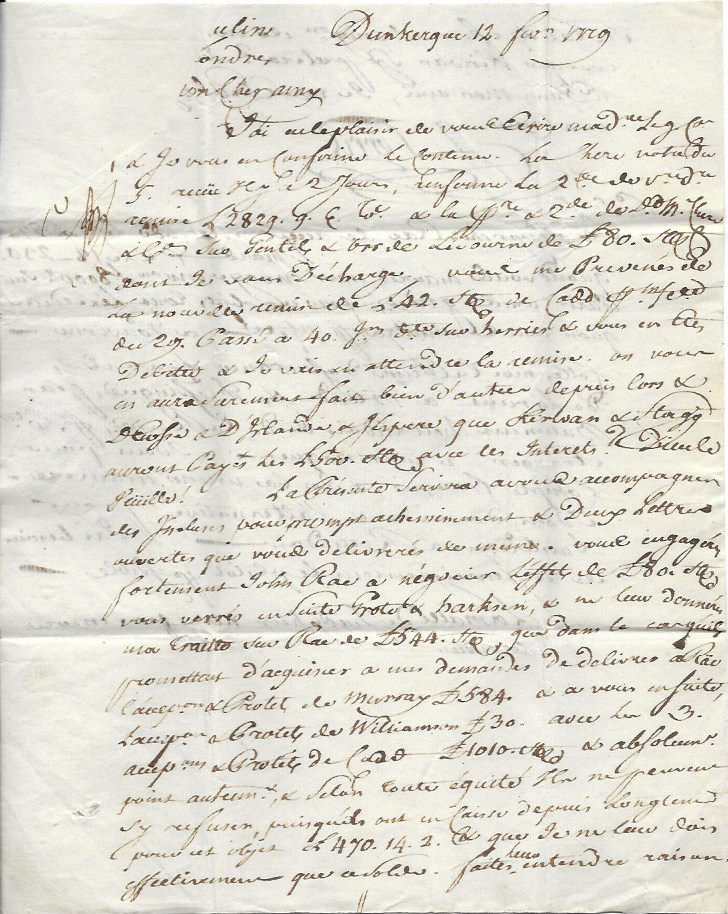 ulins
Dunkerque 12. fevr. 1779
ondres
mon Cher amy
J'ai eu le plaisir de vous Ecrire mad. le 9 Cou
& Je vous en Confirme Le Contenu. La chere votre du
5. recüe il y a 2 Jours, renferme La 2de de vre dre
remise £ 2829. 9. 6. & la Pre & 2de de
& Co. Sur Gentil & Orr de Livourne de £80. Stg
dont Je vous Décharge. vous me Prevenés de
La nouvelle remise de £ 42. Stg de Cadd
du 29. Passé a 40. Jrs dte sur herries & vous en Etes
Debitté & Je vais en attendre la remise. on vous
en aura Surement fait bien d'autres depuis Lors &
d'Ecosse & D'Irlande & J'Espere que Kirwan & Stagg
auront Payés Les £500. Stg avec Les Interets.
feüille! La Présente Servira a vous accompagner
des Incluses vous prompt acheminement & Deux Lettres
ouvertes que vous délivrerés de même. vous engagérés
fortement John Rae a négocier L'effet de £80. Stg
vous verrés ensuite Grote & harksen, & ne leur donnerés
ma Traitte sur Rae de £544. Stg, que dans le cas qu'ils
promettent d'acquiecer a mes demandes de délivrer a Rae
L'accpon & Protet de Murray £584. & a vous ensuite,
L'accpon & Protets de Williamson £30. avec les 3.
accpons & Protêts de Cadd £1010. Stg & absolumt
point autremt, & Selon toute équité Ils ne peuvent
S'y refuser, puisquils ont en Caisse depuis Longtems
pour cet objet £ 470. 14. 2. & que Je ne leur dois
effectivement que ce Solde. faites leur entendre raison